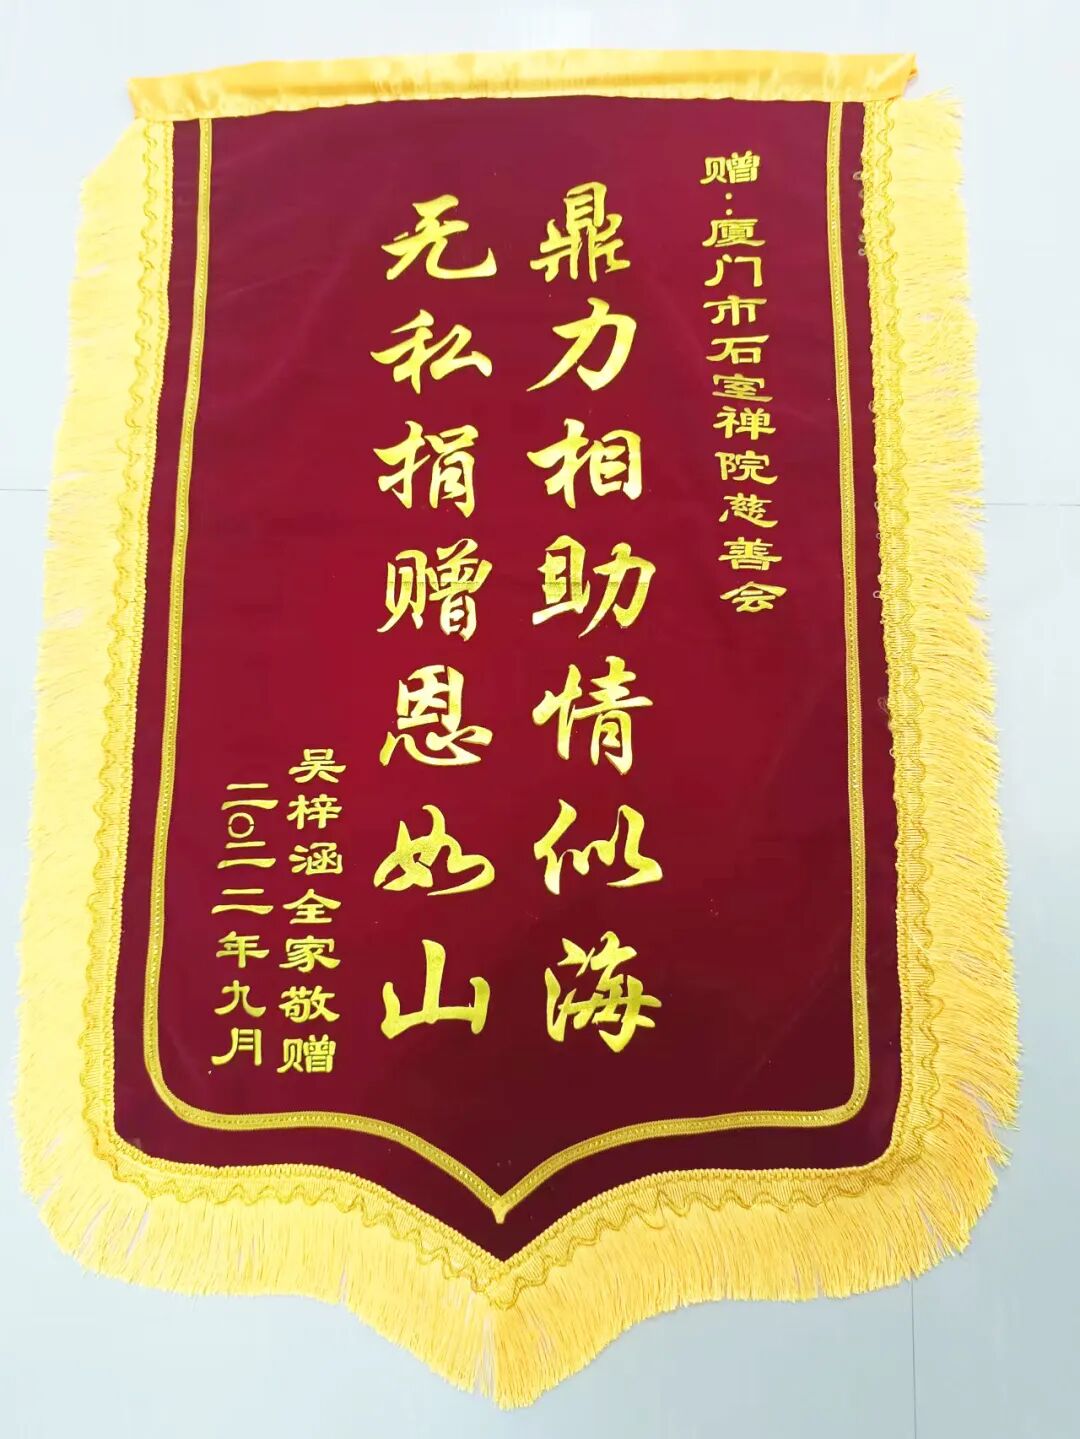 赠:厦门市石室禅院慈善会
鼎力相助情似海
无私捐赠恩如山
吴梓涵全家敬赠
二〇二二年九月